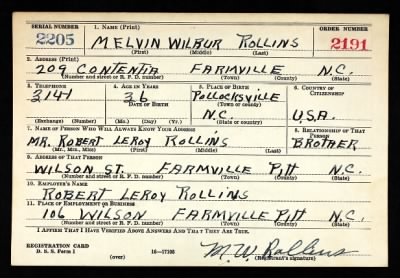 SERIAL NUMBER 1. NAME (Print) ORDER NUMBER
2205 MELVIN WILBUR ROLLINS 2191
(First) (Middle) (Last)
2. ADDRESS (Print)
209 CONTENTA FARMVILLE N.C.
(Number and street or R. F. D. number) (Town) (County) (State)
3. TELEPHONE 4. AGE IN YEARS 5. PLACE OF BIRTH 6. COUNTRY OF CITIZENSHIP
3141 36 POLLOCKSVILLE
DATE OF BIRTH (Town or county)
N.C. U.S.A.
(Exchange) (Number) (Mo.) (Day) (Yr.) (State or country)
7. NAME OF PERSON WHO WILL ALWAYS KNOW YOUR ADDRESS 8. RELATIONSHIP OF THAT PERSON
MR. ROBERT LEROY ROLLINS BROTHER
(Mr., Mrs., Miss) (First) (Middle) (Last)
9. ADDRESS OF THAT PERSON
WILSON ST. FARMVILLE PITT N.C.
(Number and street or R. F. D. number) (Town) (County) (State)
10. EMPLOYER'S NAME
ROBERT LEROY ROLLINS
11. PLACE OF EMPLOYMENT OR BUSINESS
106 WILSON FARMVILLE PITT N.C.
(Number and street or R. F. D. number) (Town) (County) (State)
I AFFIRM THAT I HAVE VERIFIED ABOVE ANSWERS AND THAT THEY ARE TRUE.
REGISTRATION CARD
D. S. S. Form 1 16—17105 M. W. Rollins
(over) (Registrant's signature)